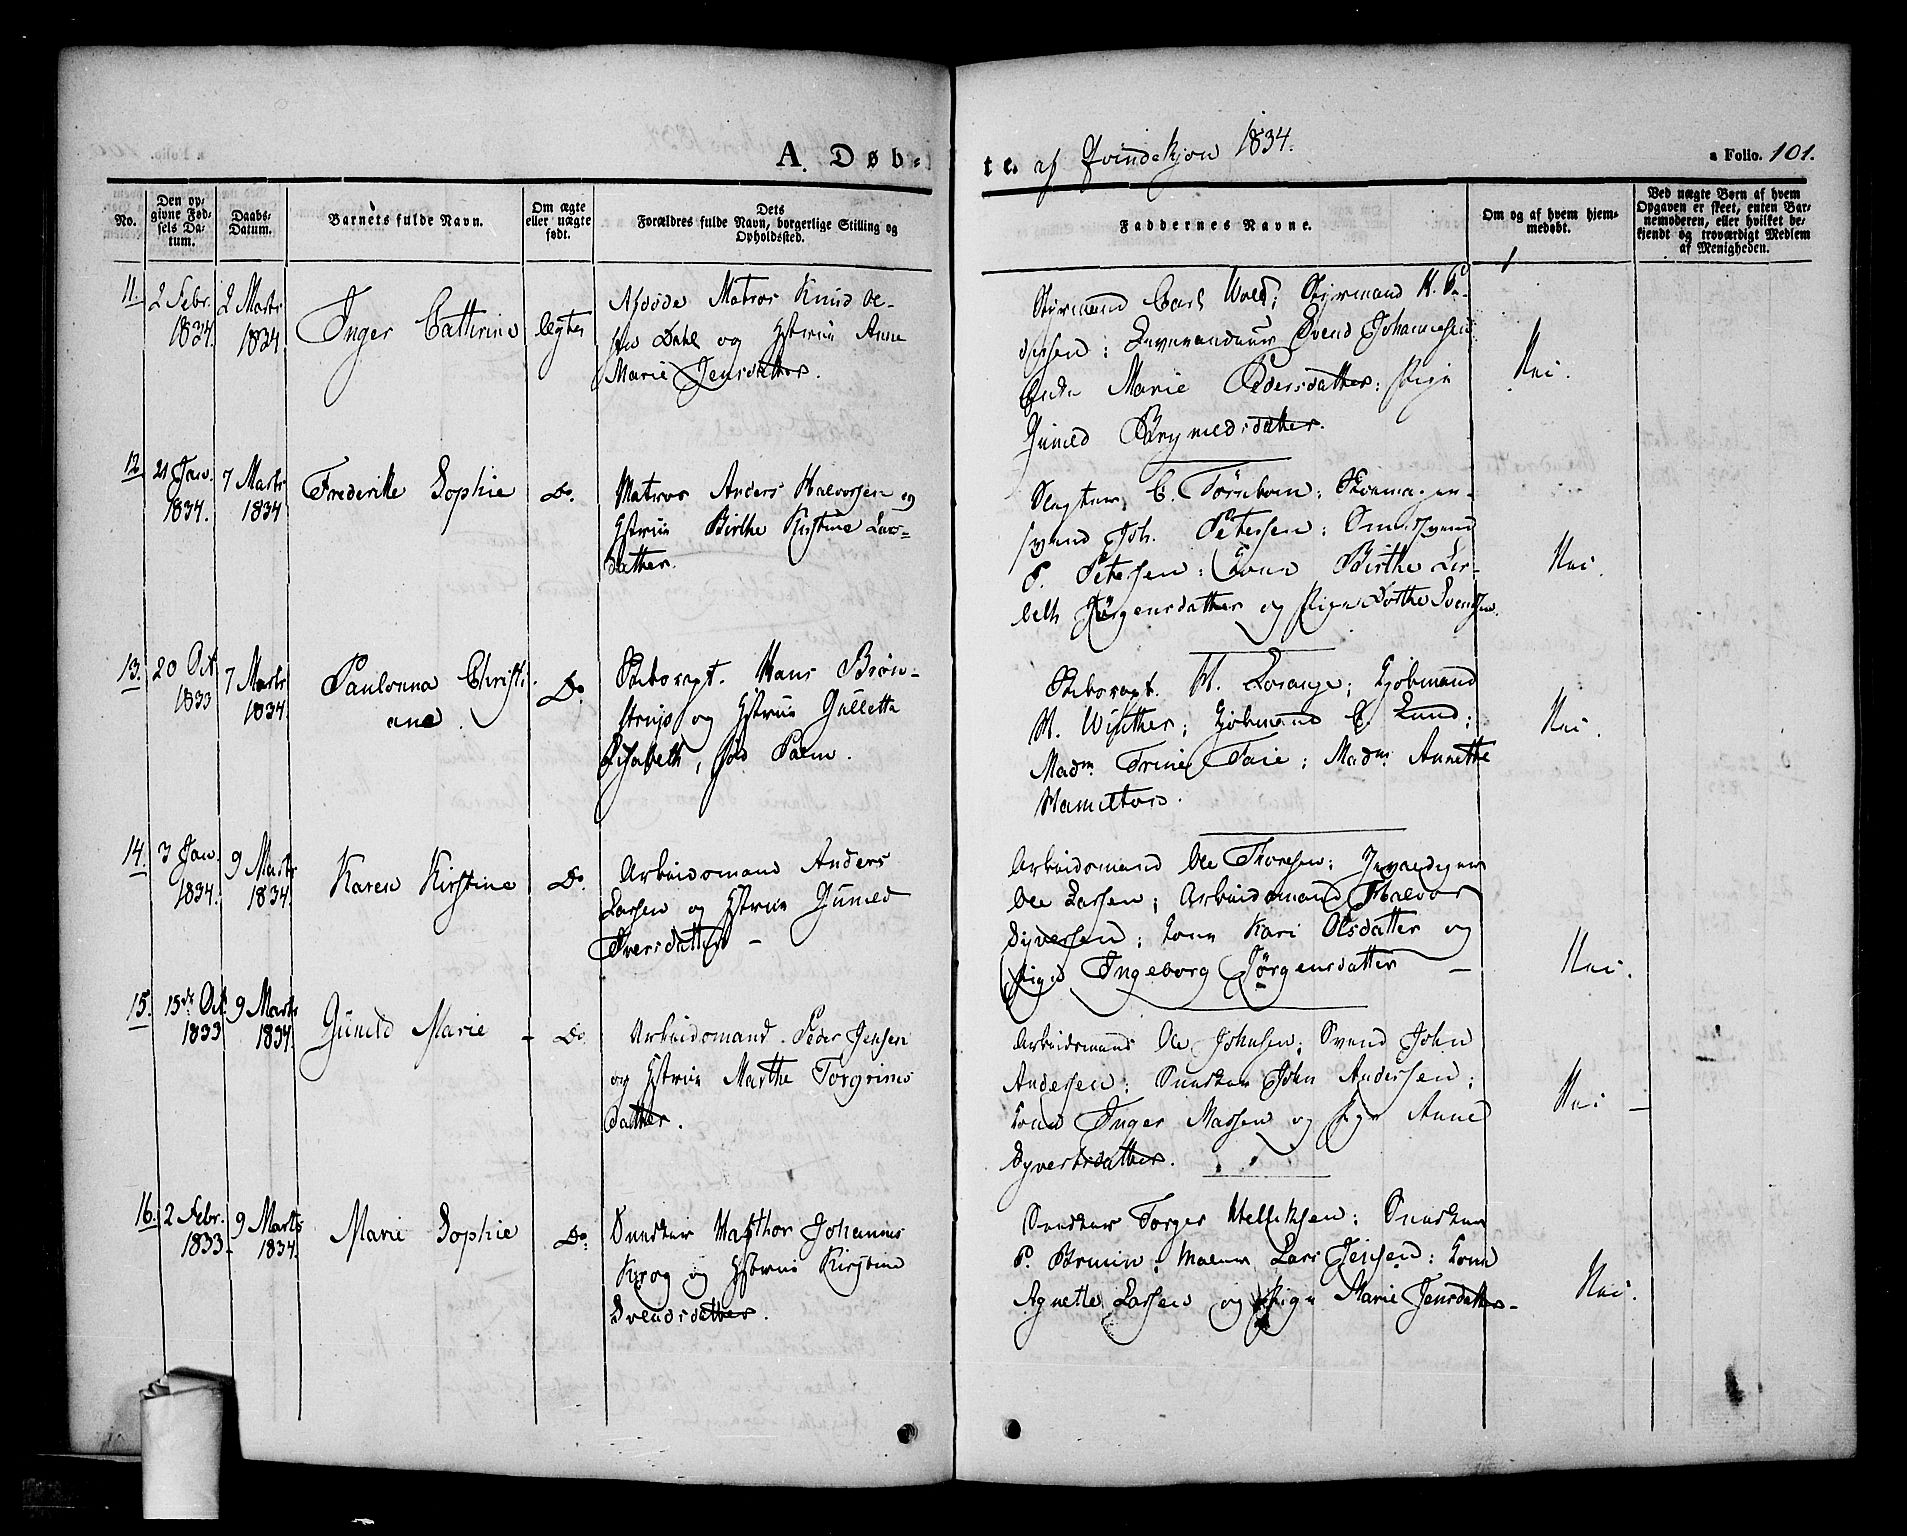 A. Døb-
te. af Qvindekjøn 1834.
a Folio. 101.
No.
Den op-
givne Fød-
sels Da-
tum.
Daabs-
Datum.
Barnets fulde Navn.
Om ægte
eller uægte
født.
Dets
Forældres fulde Navn, borgerlige Stilling og
Opholdssted.
Faddernes Navne.
Om og af hvem hjem-
medøbt.
Ved uægte Børn af hvem
Opgaven er skeet, enten Bar-
nemoderen, eller hvilket be-
kjendt og troværdigt Medlem
af Menigheden.
11. 2 Febr. 1834. 2 Marts 1834 Inger Cathrine Ægte
Afdøde Matros Knud Ol-
sen Dahl og Hstrue Anne
Marie Jensdatter.
Styrmand Carl Wold; Styrmand H. Pe-
dersen; Svend Johannesen
Enke Marie Pedersdatter; Pige
Gunild Brynildsdatter.
Nei.
12 21 Jan. 1834. 7 Marts 1834 Frederikke Sophie Do.
Matros Anders Halvorsen og
Hstrue Birthe Kirstine Lars-
datter.
Slagter C. Törnbom; Skomager-
svend Joh. Petersen; Smedsvend
P. Petersen; Kone Birthe Lis-
beth Jörgensdatter og Pige Dorthe Svendsen.
Nei.
13. 20 Oct 1833 7 Marts 1834. Paulonna Christi-
ane. Do
Skibscapt. Hans Brön-
strup og Hstrue Gullette
Elisabeth, föd Palm.
Skibscapt. H. Lorange; Kjöbmand
H. Winther; Kjöbmand C. Lund;
Madm Trine Faie; Madm Annette
Hamilton.
Nei.
14. 3 Jan. 1834. 9 Marts 1834. Karen Kirstine Do.
Arbeidsmand Anders
Larsen og Hstrue Gunild
Iversdatter –
Arbeidsmand Ole Thoresen;
Ole Larsen; Arbeidsmand Halvor
Syversen; Kone Kari Olsdatter og
Pige Ingeborg Jörgensdatter –
Nei.
15. 15de Oct 1833 9 Marts 1834. Gunild Marie – Do.
Arbeidsmand Peder Jensen
og Hstrue Marthe Torgrims
datter.
Arbeidsmand Ole Johnsen; Svend John
Andersen; Snedker John Andersen;
Kone Inger Massen og Pige Anne
Syvertsdatter.
Nei –
16. 2 Febr. 1833. 9 Marts 1834. Marie Sophie Do.
Snedker Halfthor Johannes
Krog og Hstrue Kirstine
Svendsdatter.
Snedker Torger Kittilsen; Snedker
P. Brunin; Maler Lars Jensen; Kone
Agnette Larsen og Pige Marie Jensdatter –
Nei.